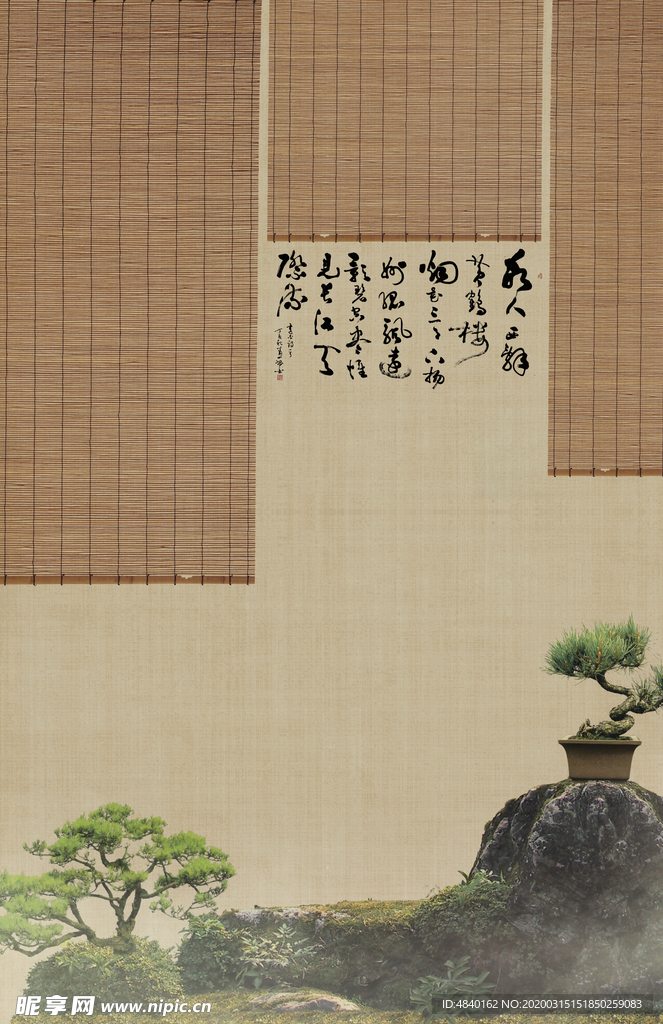 故人西辭
黄鶴樓
烟花三月下扬
州孤帆遠
影碧空尽惟
見长江天
際流
昵享网 www.nipic.cn
ID:4840162 NO:20200315151850259083